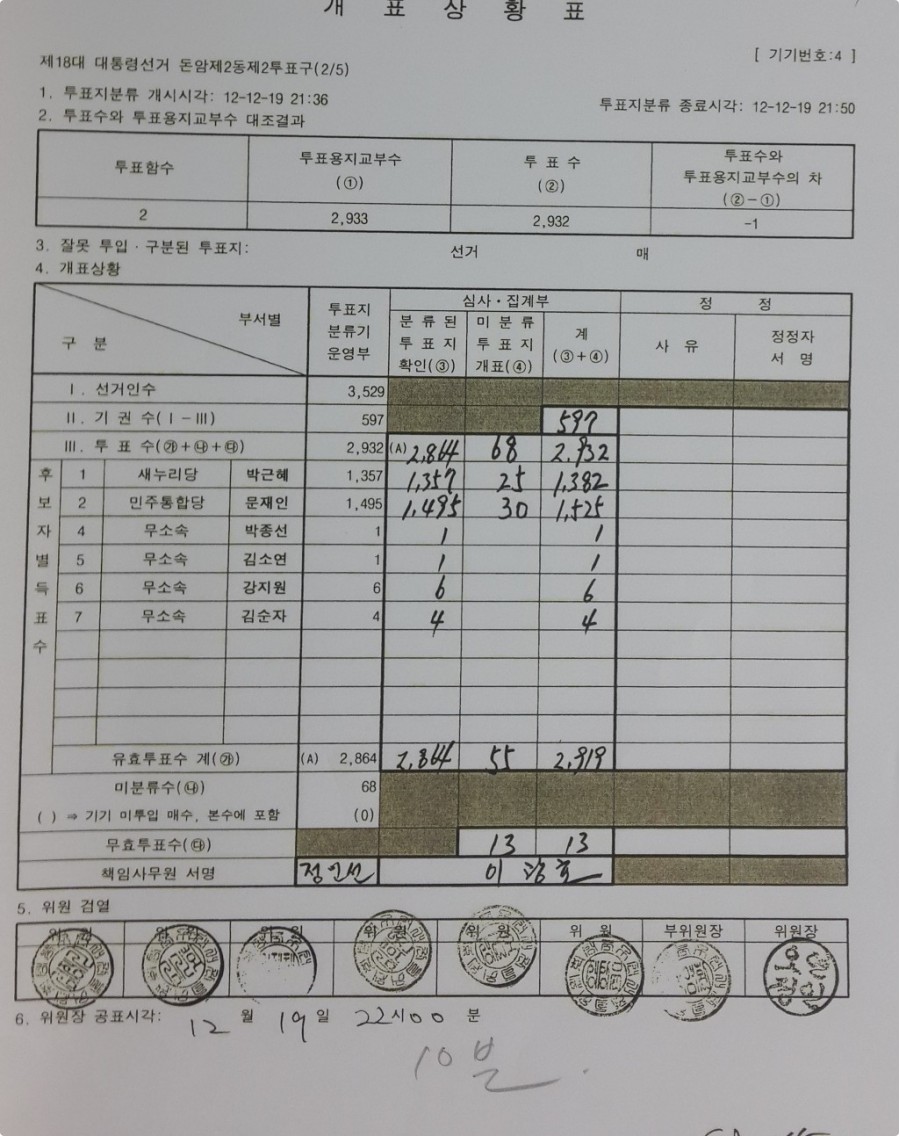 개 표 상 황 표
[ 기기번호:4 ]
제18대 대통령선거 돈암제2동제2투표구(2/5)
1. 투표지분류 개시시각: 12-12-19 21:36 투표지분류 종료시각: 12-12-19 21:50
2. 투표수와 투표용지교부수 대조결과
투표함수 투표용지교부수 (①) 투 표 수 (②) 투표수와 투표용지교부수의 차 (②-①)
2 2,933 2,932 -1
3. 잘못 투입·구분된 투표지: 선거 매
4. 개표상황
구 분 부서별 투표지 분류기 운영부 심사·집계부 정 정
분 류 된 투 표 지 확인(③) 미 분 류 투 표 지 개표(④) 계 (③+④) 사 유 정정자 서 명
Ⅰ. 선거인수 3,529
Ⅱ. 기 권 수(Ⅰ-Ⅲ) 597 597
Ⅲ. 투 표 수(㉮+㉯+㉰) 2,932 (A) 2,864 68 2,932
후보자별득표수
1 새누리당 박근혜 1,357 1,357 25 1,382
2 민주통합당 문재인 1,495 1,495 30 1,525
4 무소속 박종선 1 1 1
5 무소속 김소연 1 1 1
6 무소속 강지원 6 6 6
7 무소속 김순자 4 4 4
유효투표수 계(㉮) (A) 2,864 2,864 55 2,919
미분류수(㉯) 68
( ) ⇒ 기기 미투입 매수, 본수에 포함 (0)
무효투표수(㉰) 13 13
책임사무원 서명
5. 위원 검열
위 원 위 원 위 원 위 원 위 원 위 원 부위원장 위원장
6. 위원장 공표시각: 12 월 19 일 22시00 분
10분.